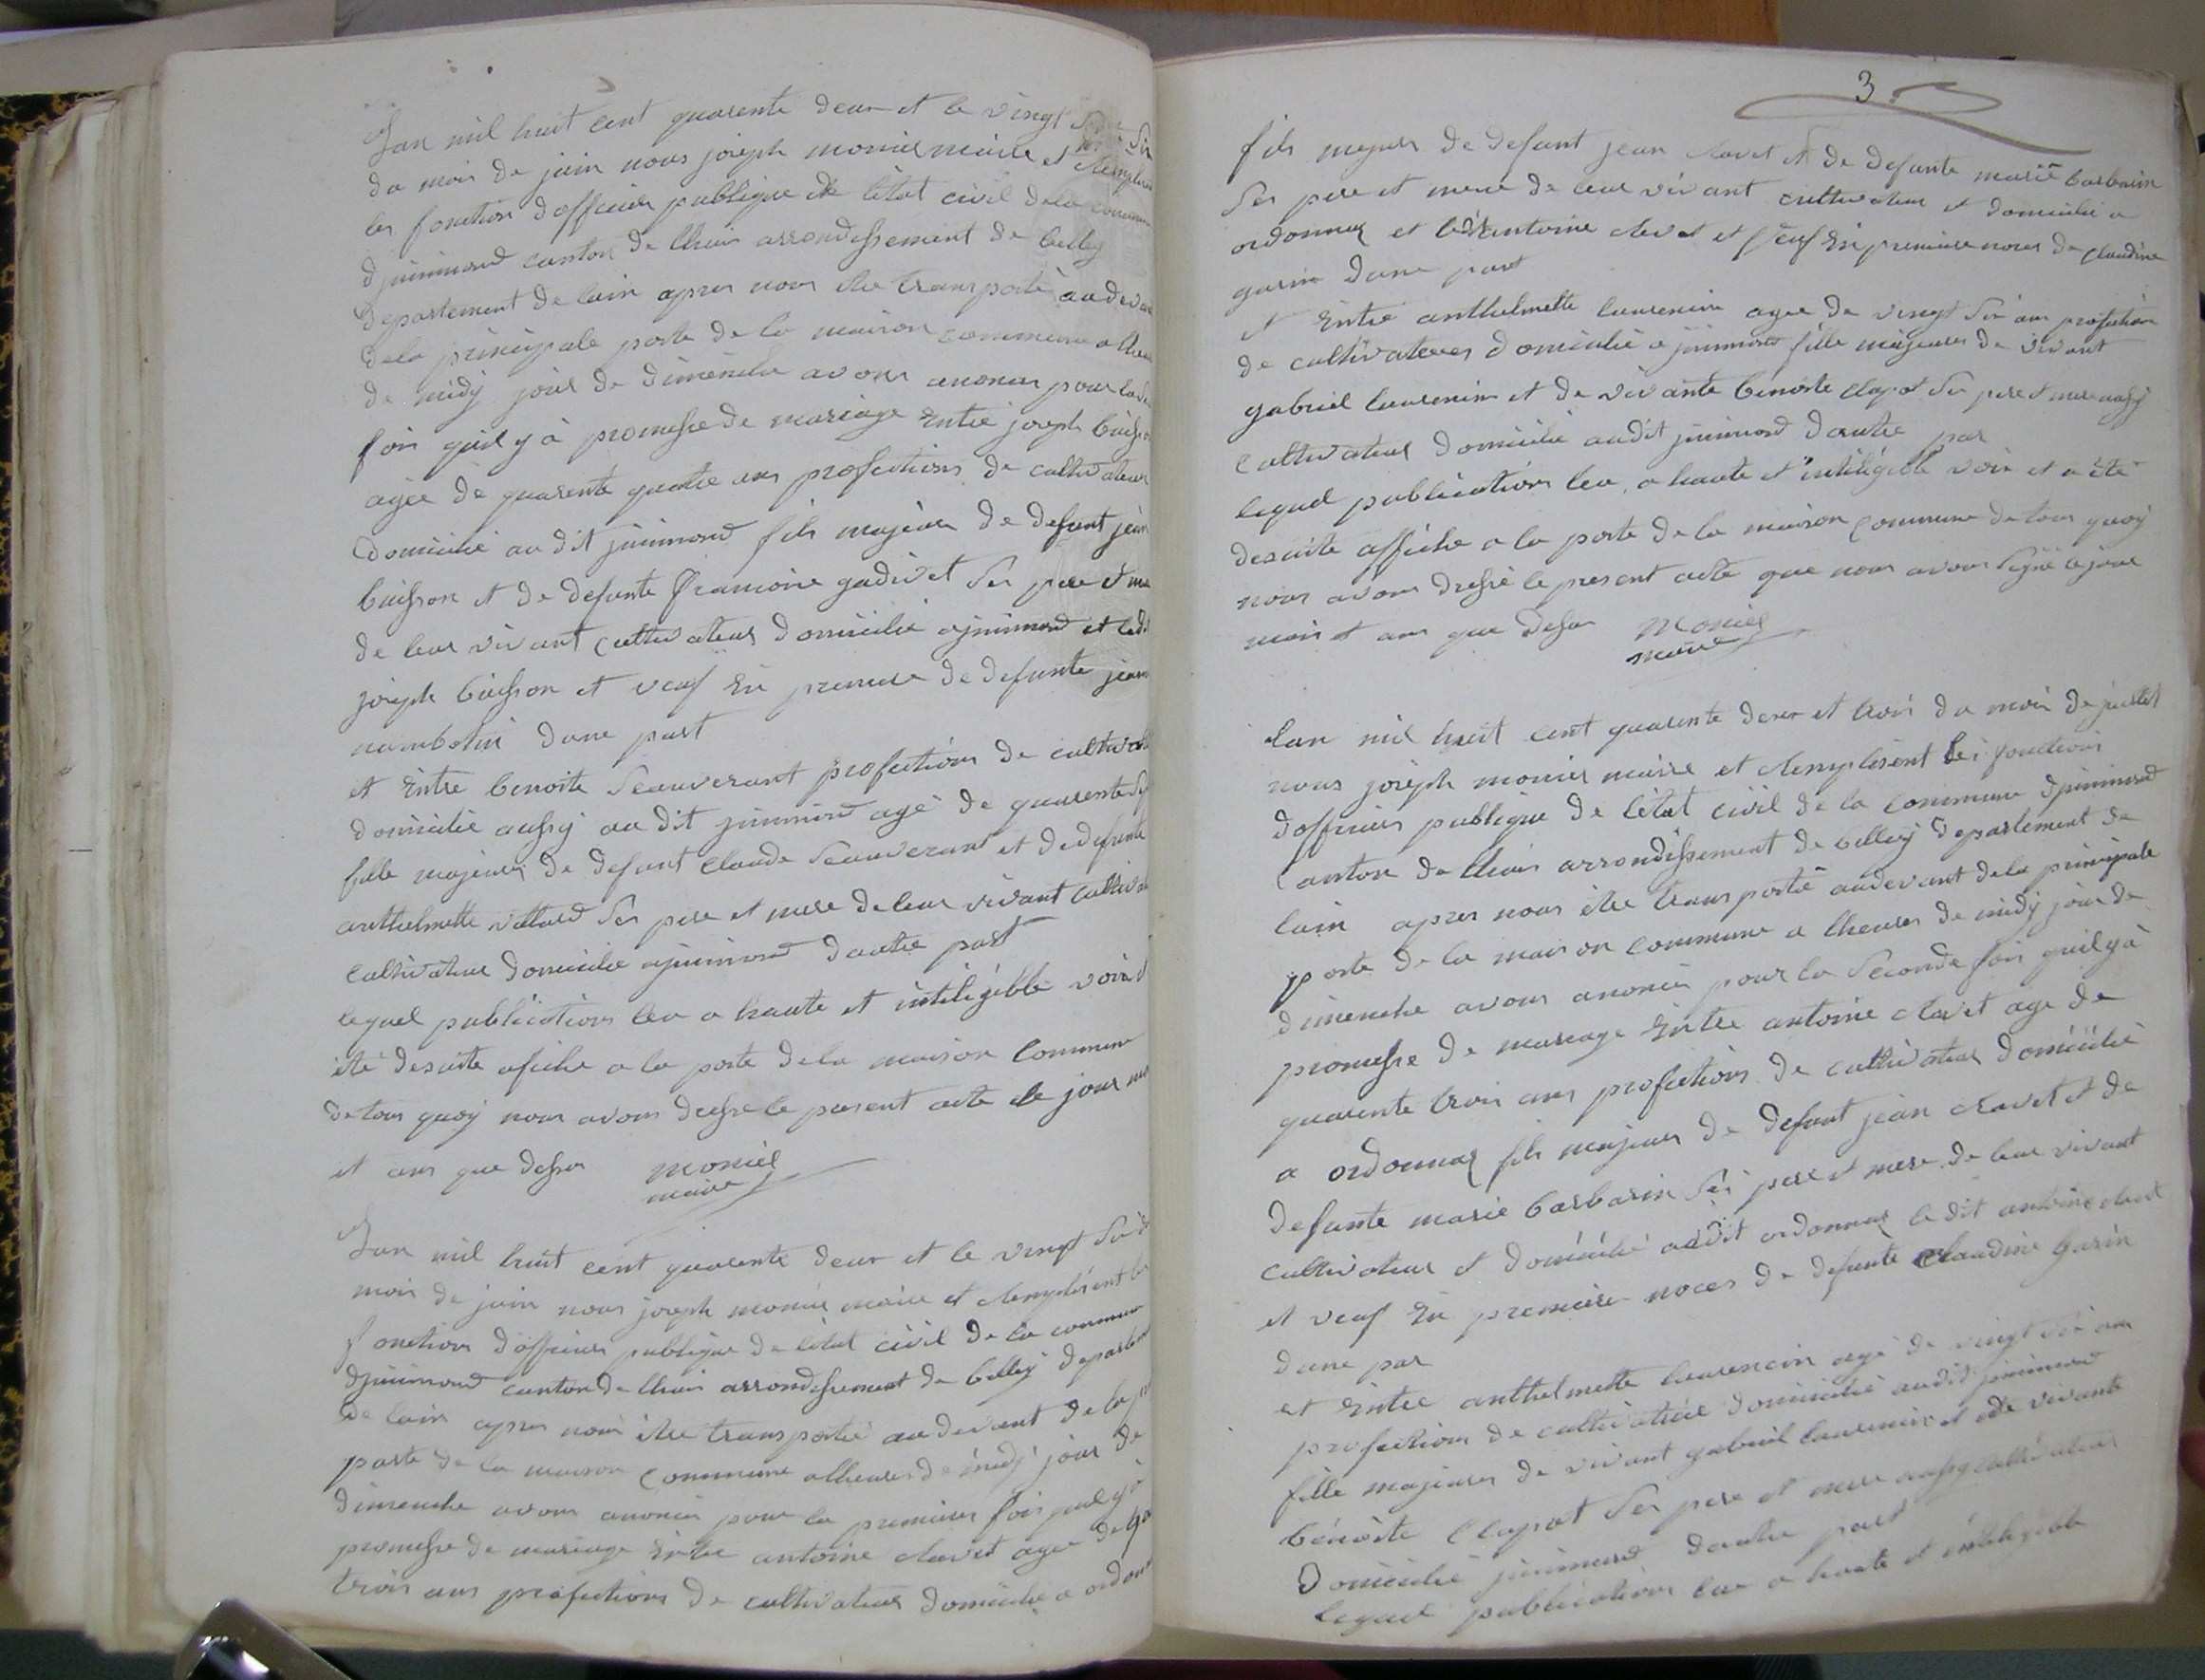 Lan mil huit cent quarente deux et le vingt six
du mois de juin nous joseph monier maire et
les fonction dofficier publique de létat civil dela commune
djzimmeux canton de lhuis arrondissement de belley
departement de lain apres nous etre transporté au devant
dela principale porte de la maison commune a lheure
de midÿ jour de dimenche avons anoncer pour
fois quil y à promesse de mariage Entre joseph buisson
agée de quarente quatre ans profeitions de cultivateur
domicilié au dit fils majeur de defunt jean
buisson et de defunte francoise gudivet Ses pere et mere
de leur vivant cultivateur domicilié et ledit
joseph buisson et veuf En premiere de defunte
nambotin dune part
et Entre benoite Seauverant profeitions de cultivat
domicilié aussÿ au dit agé de quarente
fille majeure de defunt claude Seauverant et de defunte
anthelmette vattard Ses pere et mere de leur vivant cultivat
cultivateur domicilié dautre part
lequel publications leu a haute et intiligible voix et
été desuite afiche a la porte dela maison commune
de tous quoÿ nous avons dressé le present acte le jour mois
et ans que dessu monier
maire
Lan mil huit cent quarente deux et le vingt Six du
mois de juin nous joseph monier maire et remplisent les
fonctions dofficier publique de létat civil de la commune
canton de lhuis arrondissement de belleÿ departement
de lain apres nous etre transporté au devant de la
porte de la maison commune a lheure de midÿ jour de
dimenche avons anoncer pour la premiere fois quil y à
promesse de mariage Entre antoine clavet agée de qua
trois ans profeitions de cultivateur domicilié a ordonn
3
fils majeur de defunt jean clavet et de defunte marie barbarin
Ses pere et mere de leur vivant cultivateur et domicilié a
ordonnaz et ledit antoine clavet et veuf En premiere noces de claudine
garin dune part
et Entre anthelmette laurencin agée de vingt six ans profeitions
de cultivateur domicilié a fille majeure de vivant
gabriel laurencin et de vivante benoite clapot Ses pere et mere aussÿ
cultivateur domicilié audit dautre par
lequel publications leu a haute et intiligible voix et a été
desuite affiche a la porte de la maison commune de tous quoÿ
nous avons dressé le present acte que nous avons signé le jour
mois et ans que dessu monier
maire
Lan mil huit cent quarente deux et trois du mois de juillet
nous joseph monier maire et remplisent les fonctions
dofficier publique de létat civil de la commune
canton de lhuis arrondissement de belleÿ departement de
lain apres nous etre transporté audevant de la principale
porte de la maison commune a lheure de midÿ jour de
dimenche avons anoncer pour la Seconde fois quil y à
promesse de mariage Entre antoine clavet age de
quarente trois ans profeitions de cultivateur domicilié
a ordonnaz fils majeur de defunt jean clavet et de
defunte marie barbarin Ses pere et mere de leur vivant
cultivateur et domicilié audit ordonnaz le dit antoine clavet
et veuf En premiere noces de defunte claudine garin
dune par
et Entre anthelmette laurencin agé de vingt six ans
profeitions de cultivateur domicilié audit
fille majeure de vivant gabriel laurencin et de vivante
bénoite clapot Ses pere et mere aussÿ cultivateur
domicilié dautre part
lequel publications leu a haute et intiligible